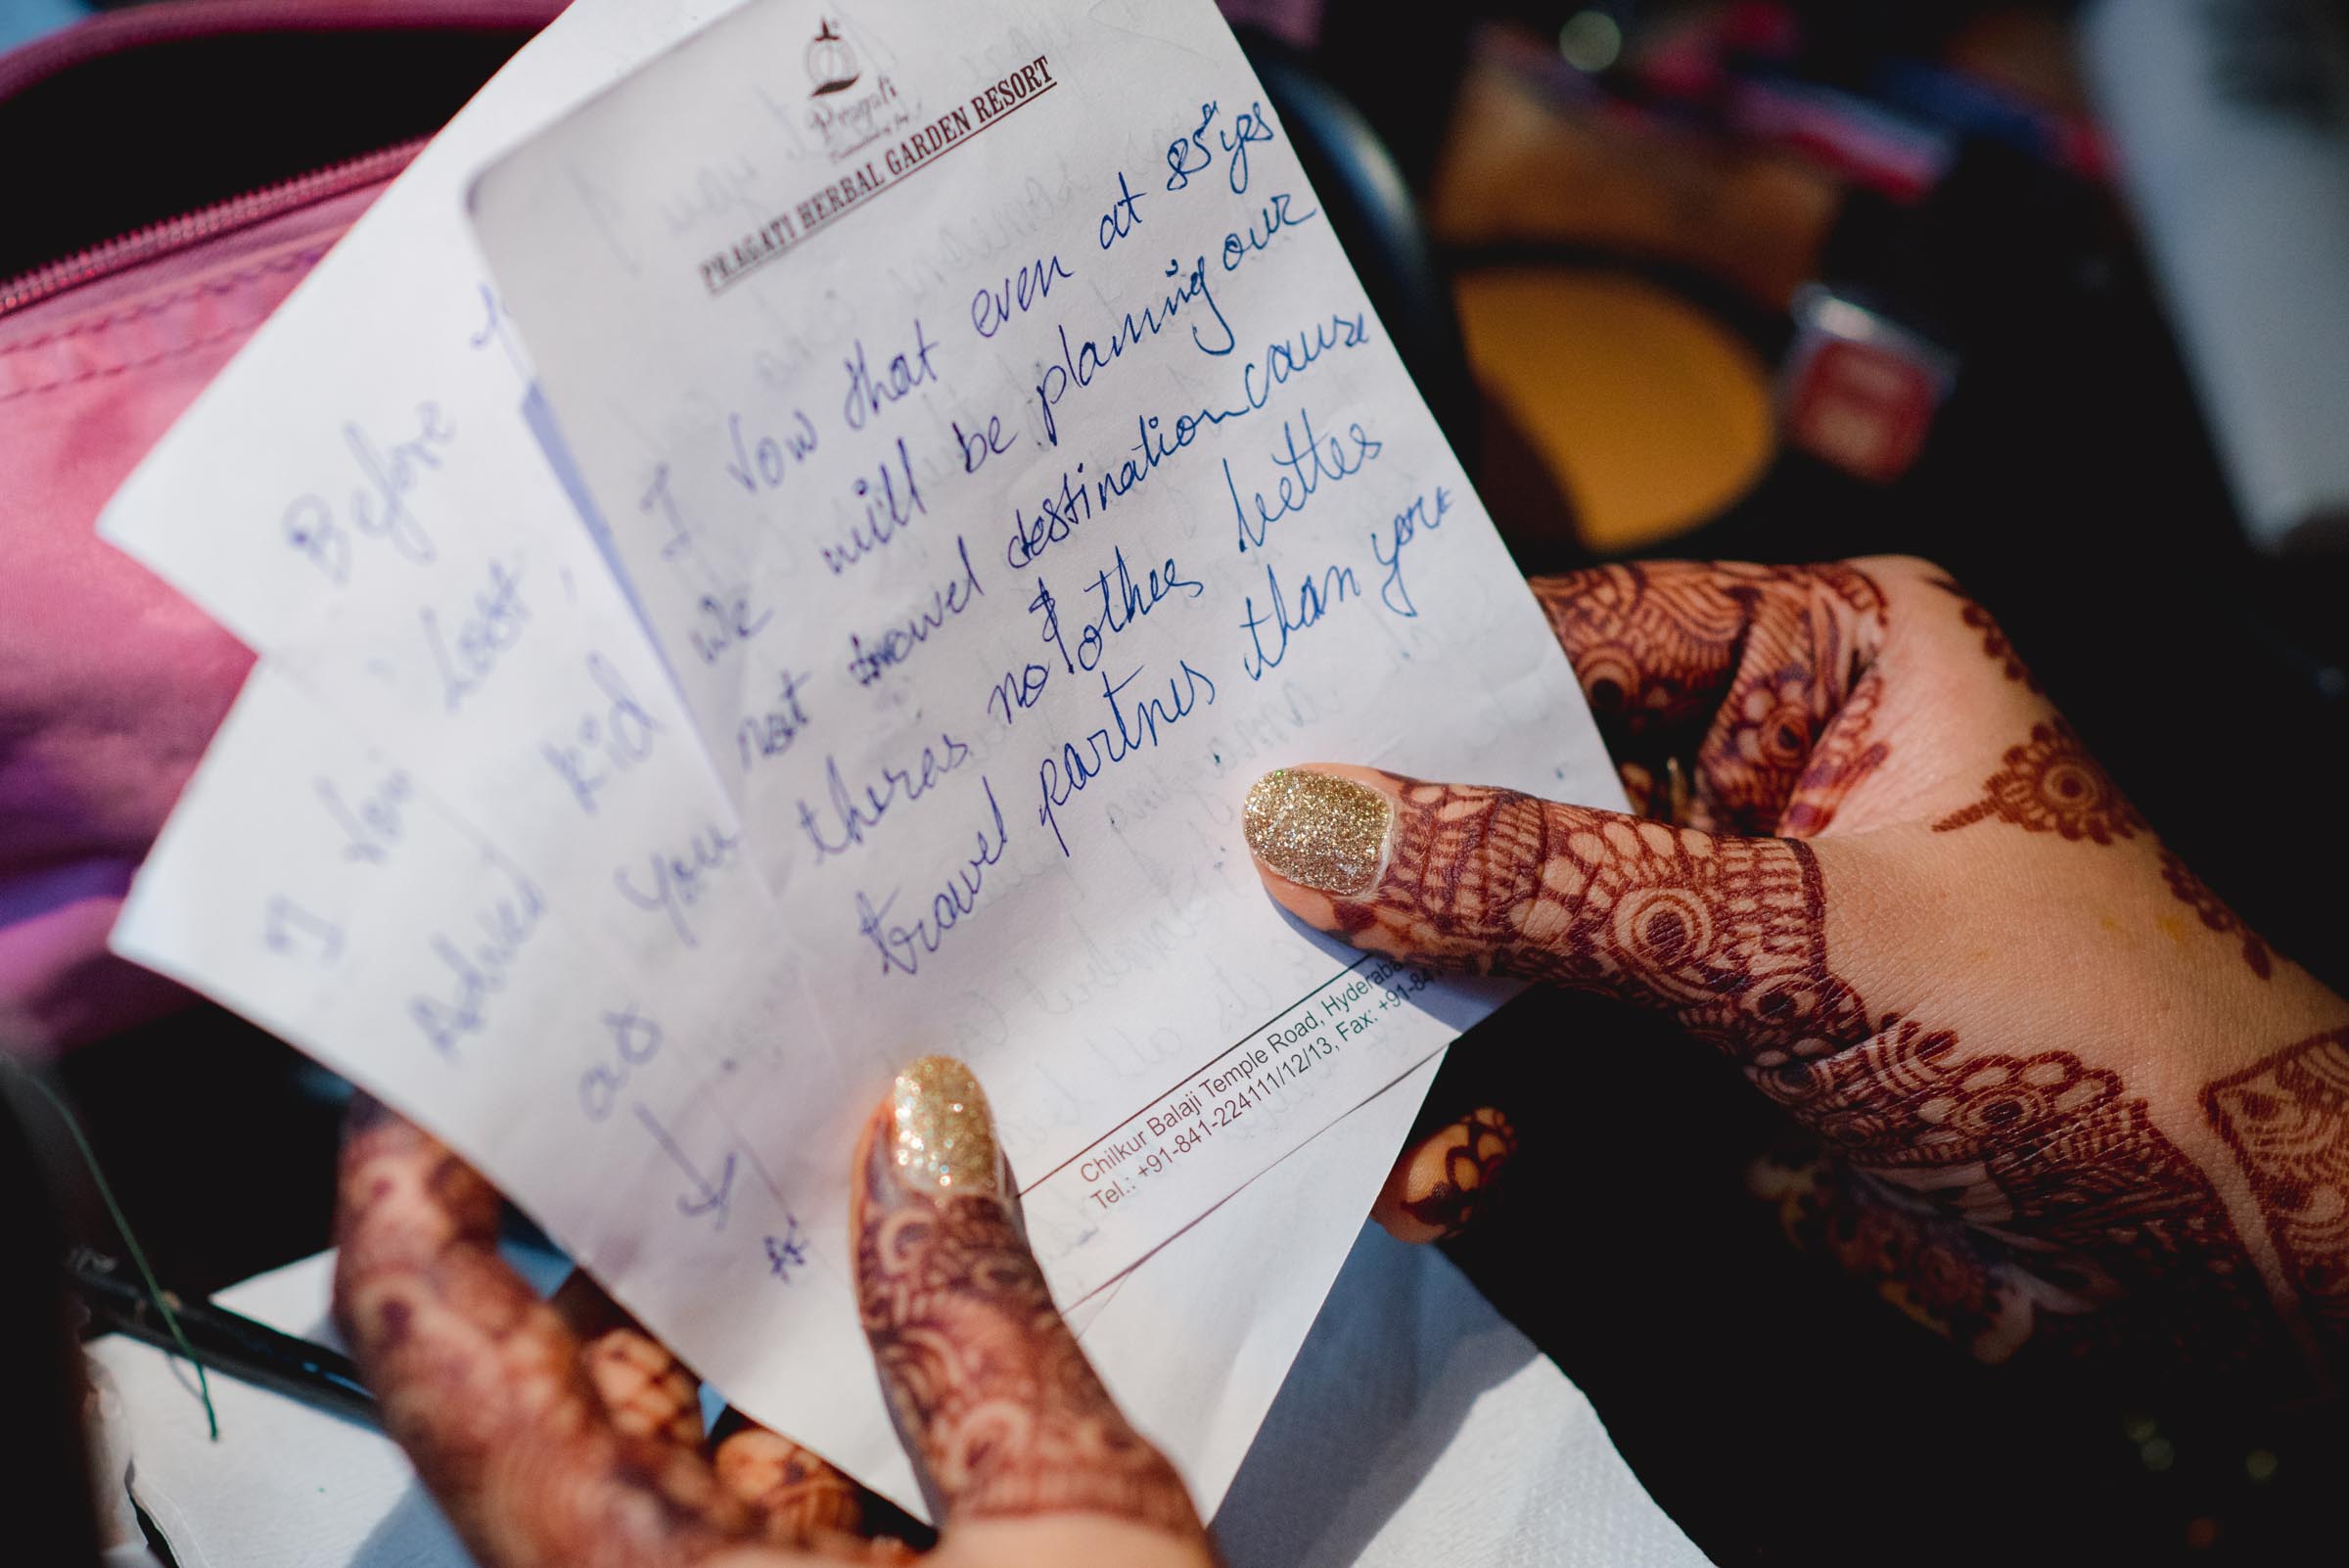 Pragati
PRAGATI HERBAL GARDEN RESORT
I Vow that even at 85 yrs
we will be planning our
nxt travel destination cause
theres no other better
travel partner than you
Chilkur Balaji Temple Road, Hyderaba
Tel.: +91-841-224111/12/13, Fax: +91-841
Before
I Lost,
kid
you
at